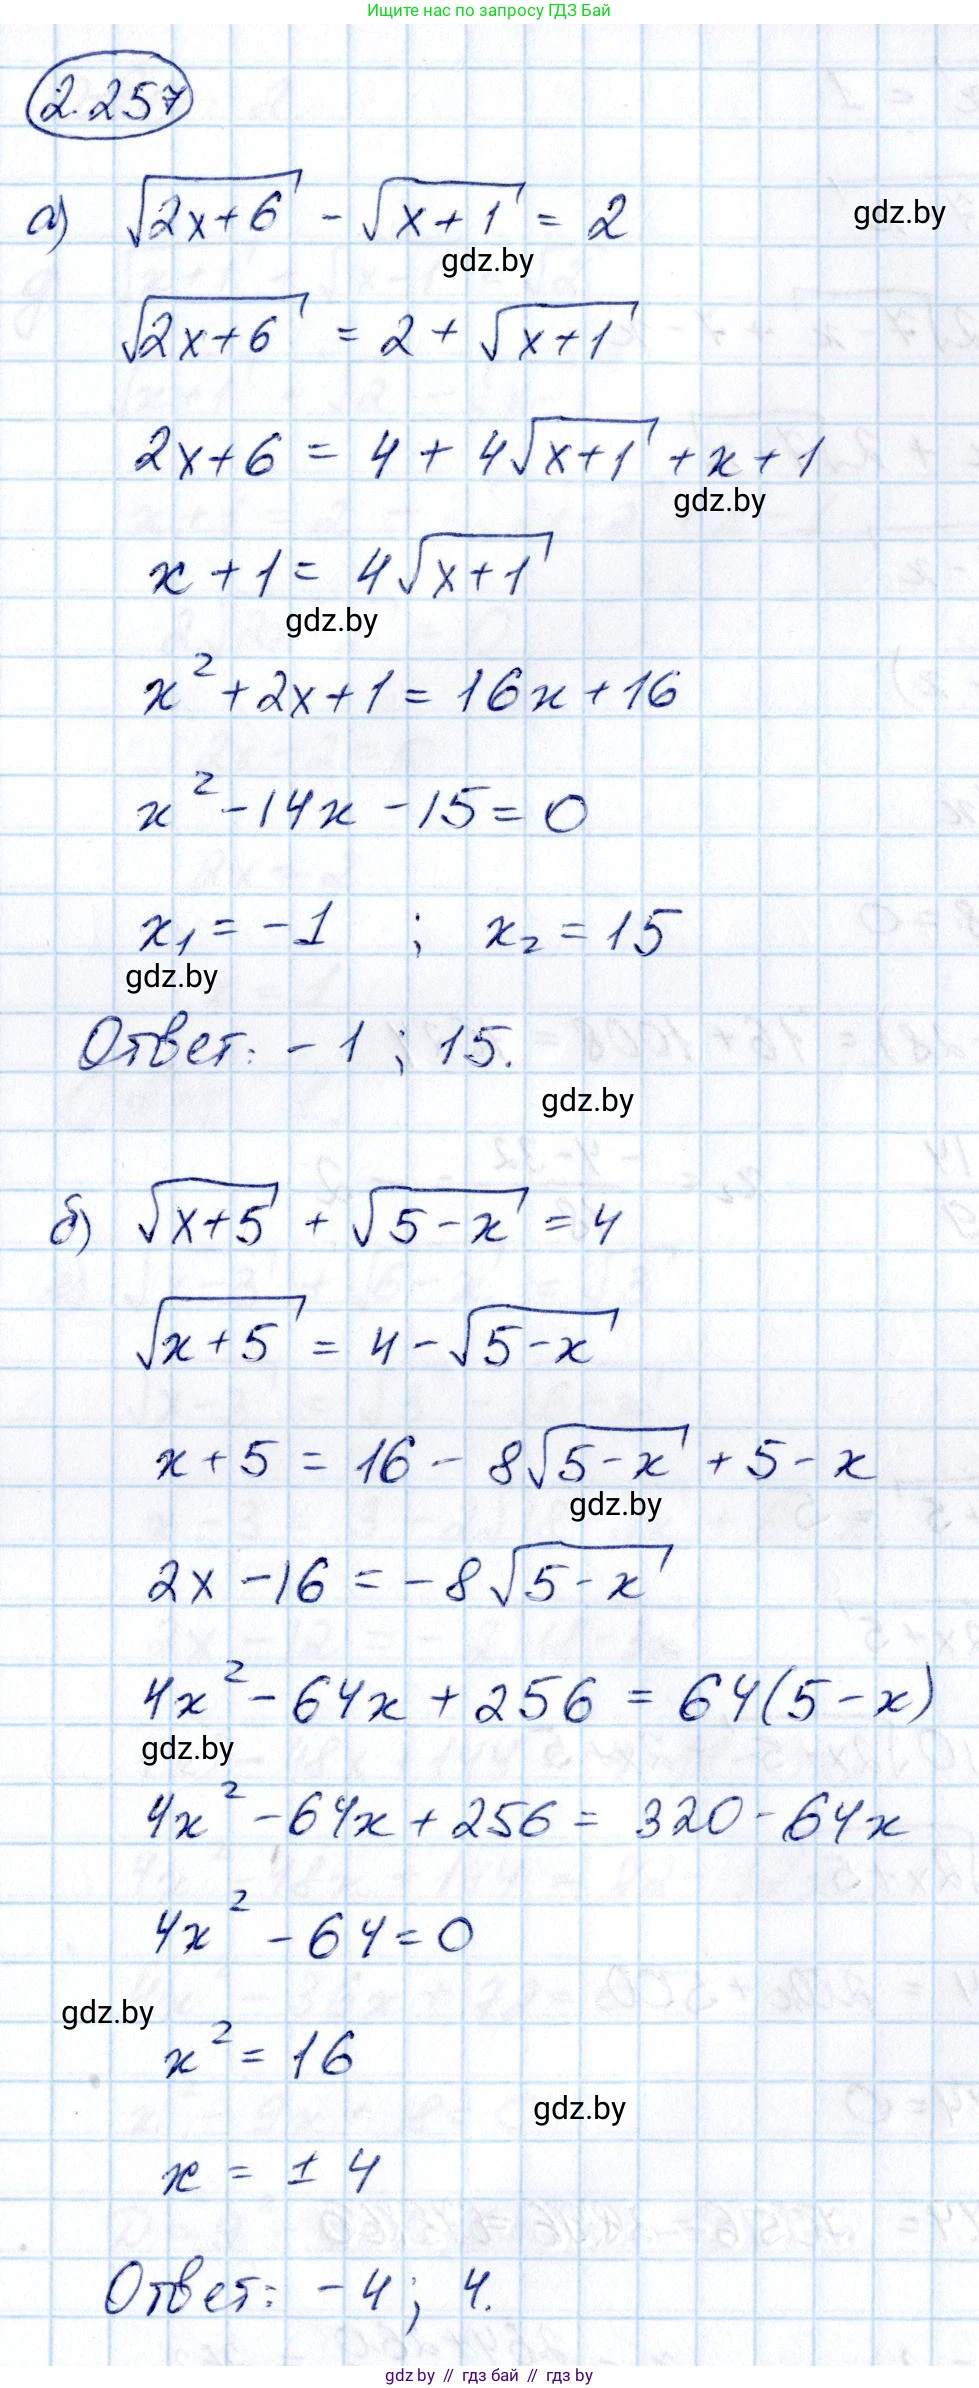 Ищите нас по запросу ГДЗ Бай
2.257
а) √(2x+6) - √(x+1) = 2
gdz.by
gdz.by
√(2x+6) = 2 + √(x+1)
2x+6 = 4 + 4√(x+1) + x + 1
gdz.by
x + 1 = 4√(x+1)
gdz.by
x² + 2x + 1 = 16x + 16
x² - 14x - 15 = 0
x₁ = -1 ; x₂ = 15
gdz.by
Ответ: -1 ; 15.
gdz.by
б) √(x+5) + √(5-x) = 4
√(x+5) = 4 - √(5-x)
x + 5 = 16 - 8√(5-x) + 5 - x
gdz.by
2x - 16 = -8√(5-x)
4x² - 64x + 256 = 64(5-x)
gdz.by
4x² - 64x + 256 = 320 - 64x
4x² - 64 = 0
gdz.by
x² = 16
gdz.by
x = ± 4
Ответ: -4; 4.
gdz by // гдз бай // gdz by